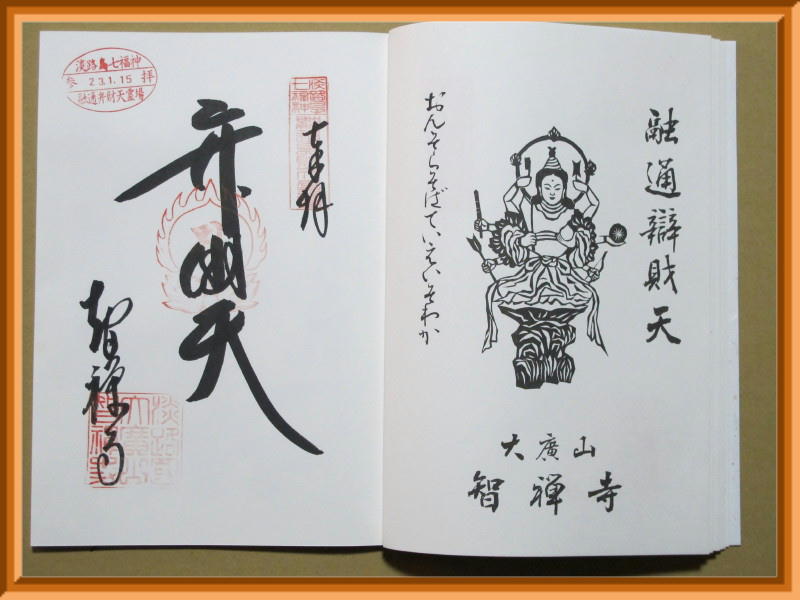 融通辯財天
おんそらそばて、いえいそわか
大廣山
智禅寺
淡路島七福神
参 23.1.15 拝
融通弁財天霊場
奉拝
弁財天
智禅寺